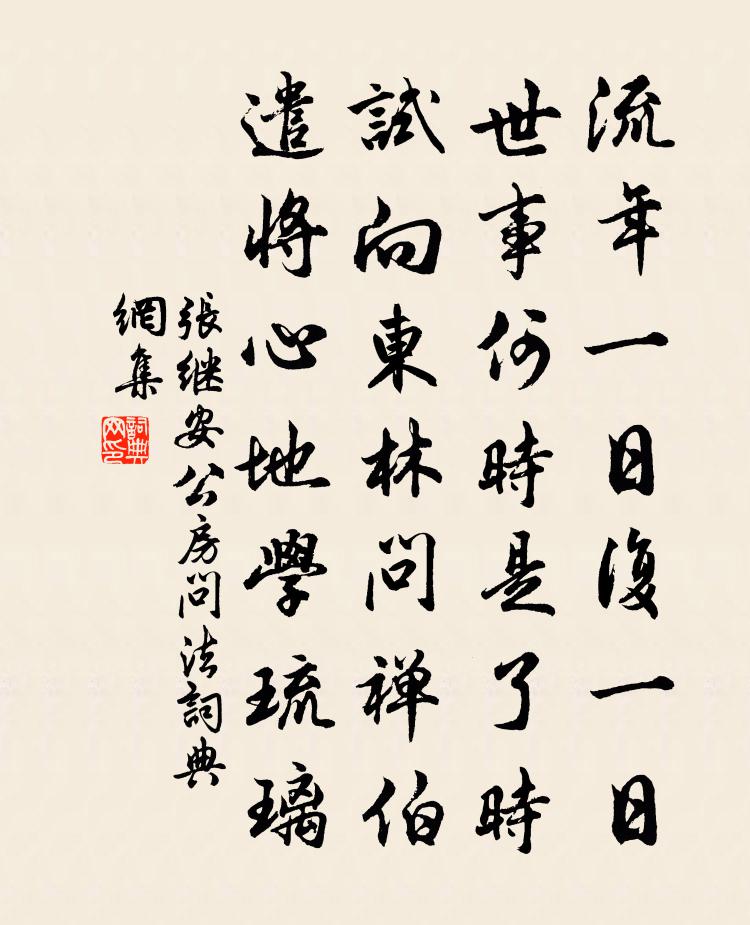 流年一日復一日
世事何時是了時
試向東林問禅伯
遣將心地學琉璃
張继安公房问法詞典
網集
詞典
网印